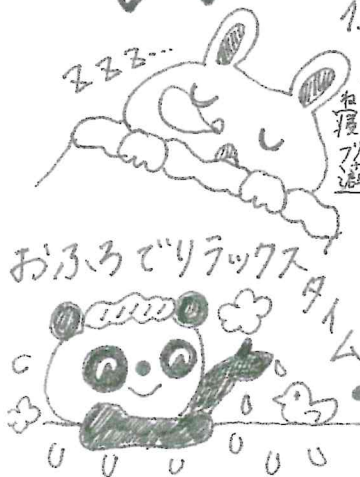 1.
zzz...
おふろでリラックスタイム